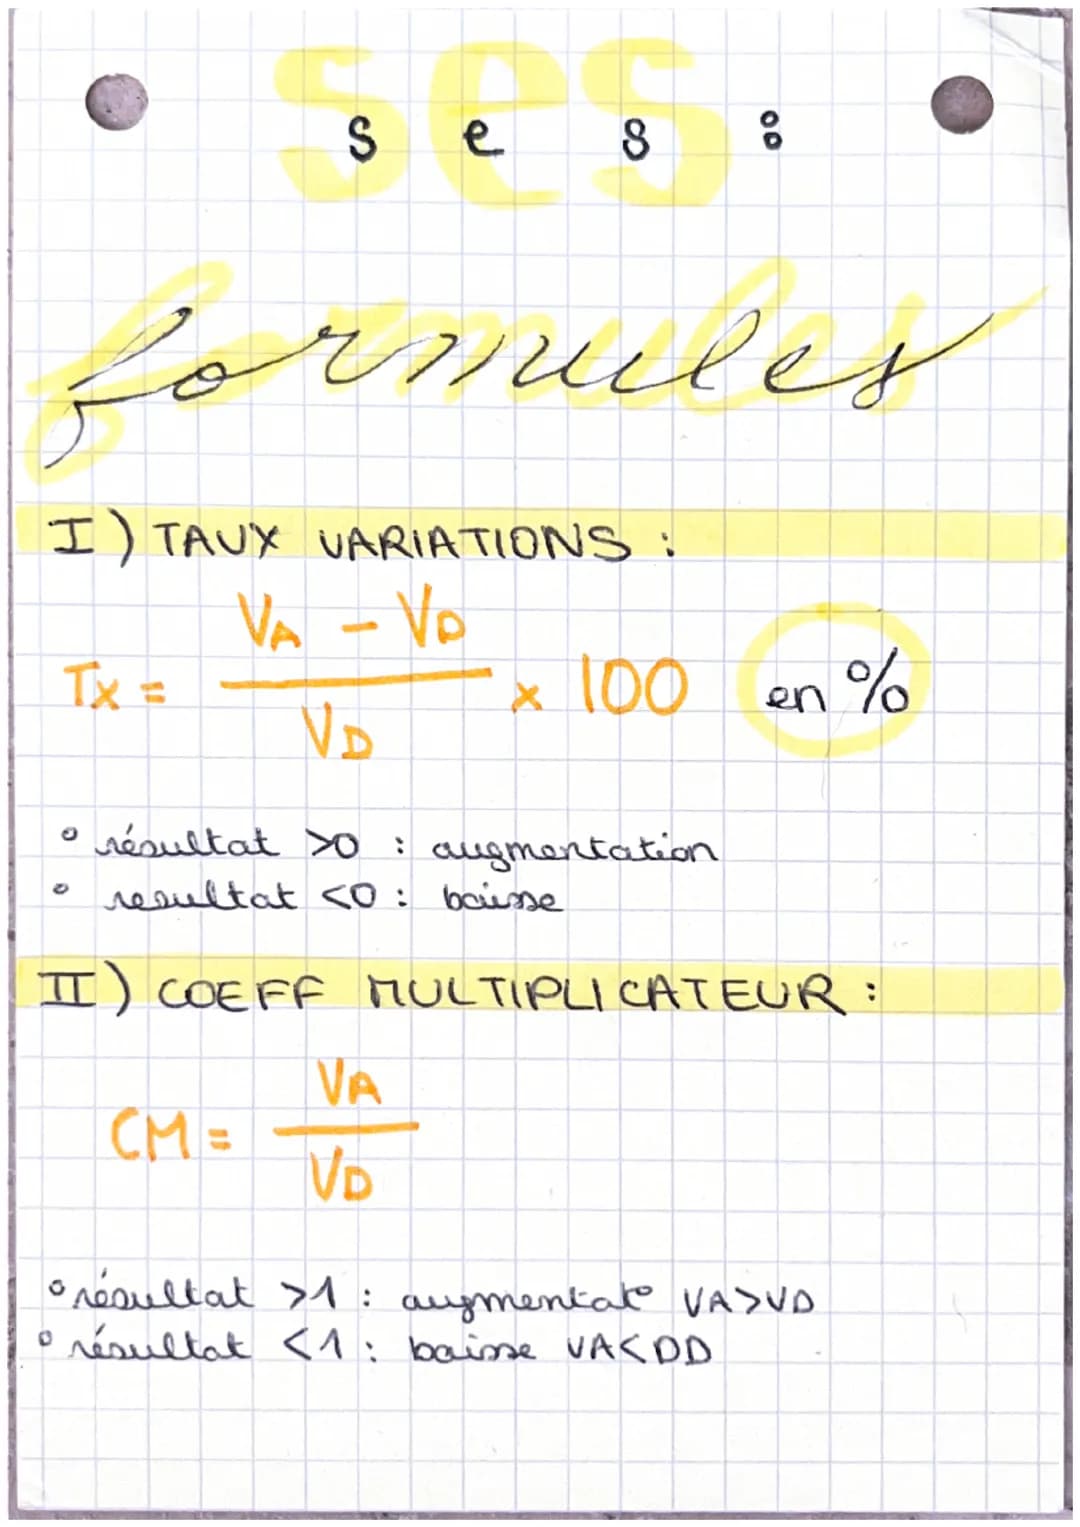 ses:
formules
I) TAUX VARIATIONS :
Tx = (VA - VD) / VD x 100 en %
° résultat >0 : augmentation
° resultat <0 : baisse
II) COEFF MULTIPLICATEUR :
CM = VA / VD
° résultat >1 : augmentat° VA>VD
° résultat <1 : baisse VA<DD